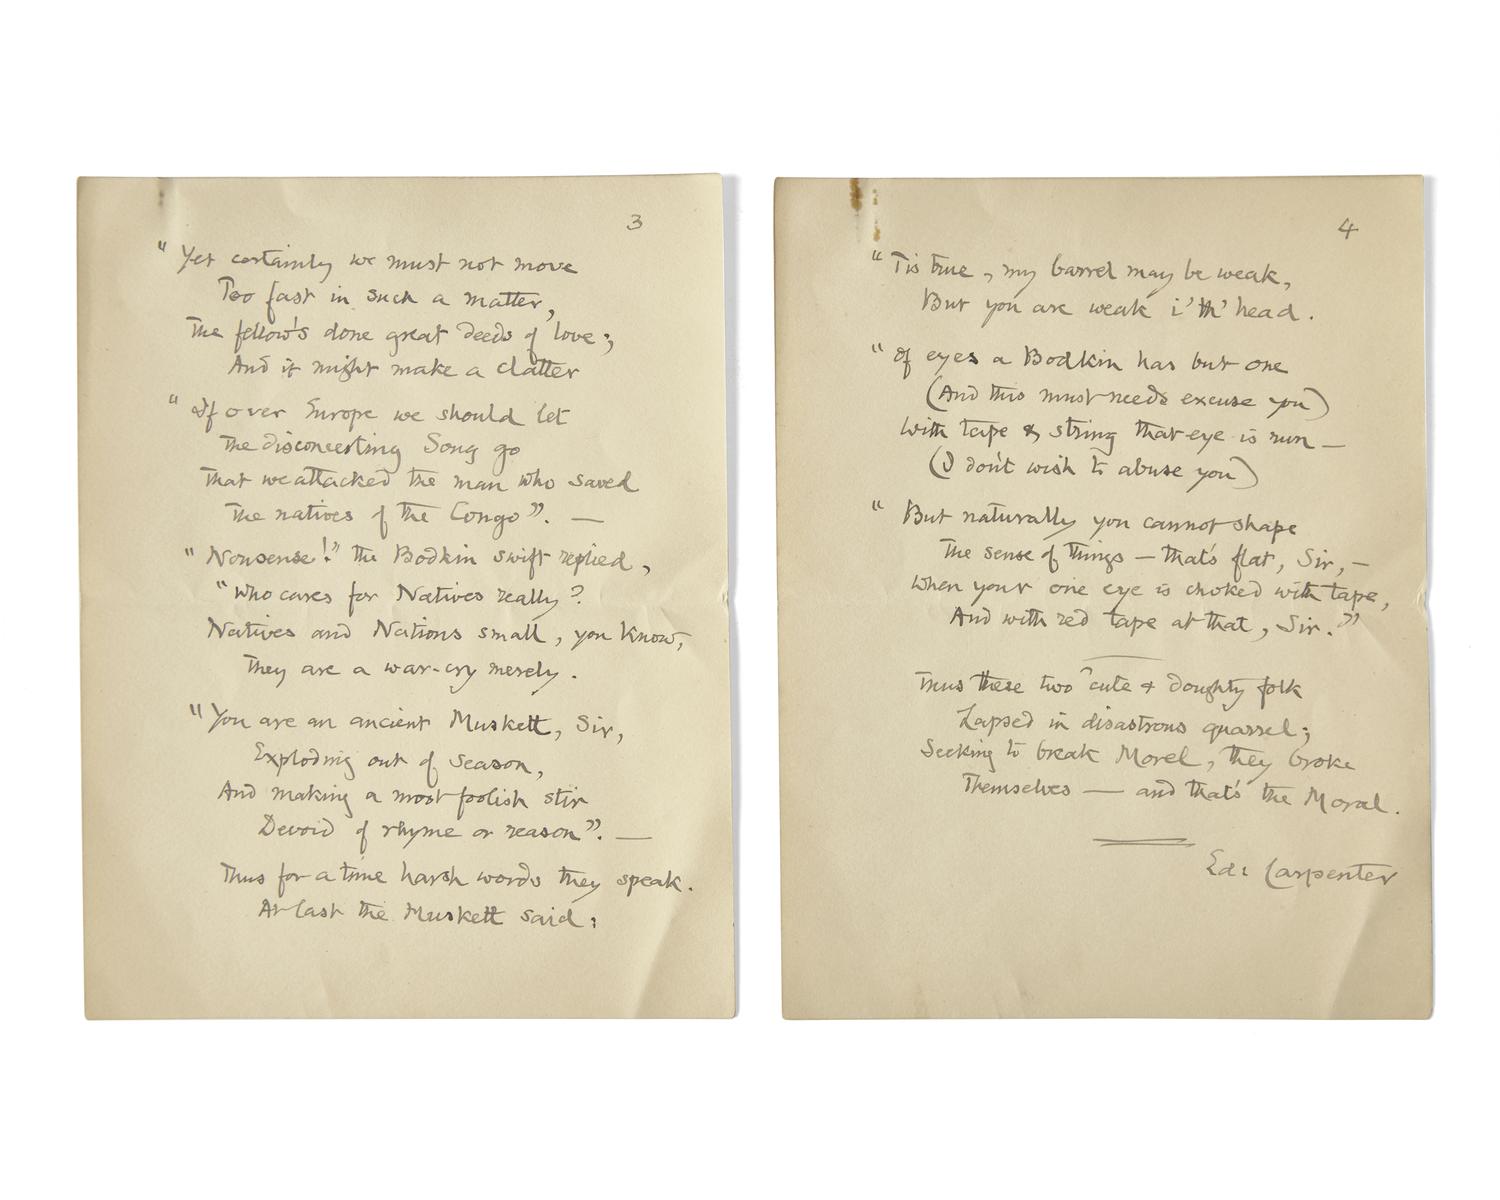 3
"Yet certainly we must not move
Too fast in such a matter,
The fellow's done great deeds of love;
And it might make a clatter
"If over Europe we should let
The disconcerting Song go
That we attacked the man who saved
The natives of the Congo". —
"Nonsense!" the Bodkin swift replied,
"Who cares for Natives really?
Natives and Nations small, you know,
They are a war-cry merely.
"You are an ancient Muskett, Sir,
Exploding out of season,
And making a most foolish stir
Devoid of rhyme or reason". —
Thus for a time harsh words they speak.
At last the Muskett said:
4
"Tis true, my barrel may be weak,
But you are weak i' th' head.
"Of eyes a Bodkin has but one
(And this must needs excuse you)
With tape & string that eye is run —
(I don't wish to abuse you)
"But naturally you cannot shape
The sense of things — that's flat, Sir, —
When your one eye is choked with tape,
And with red tape at that, Sir."
Thus these two 'cute & doughty folk
Lapsed in disastrous quarrel;
Seeking to break Morel, they broke
Themselves — and that's the Moral.
Ed: Carpenter